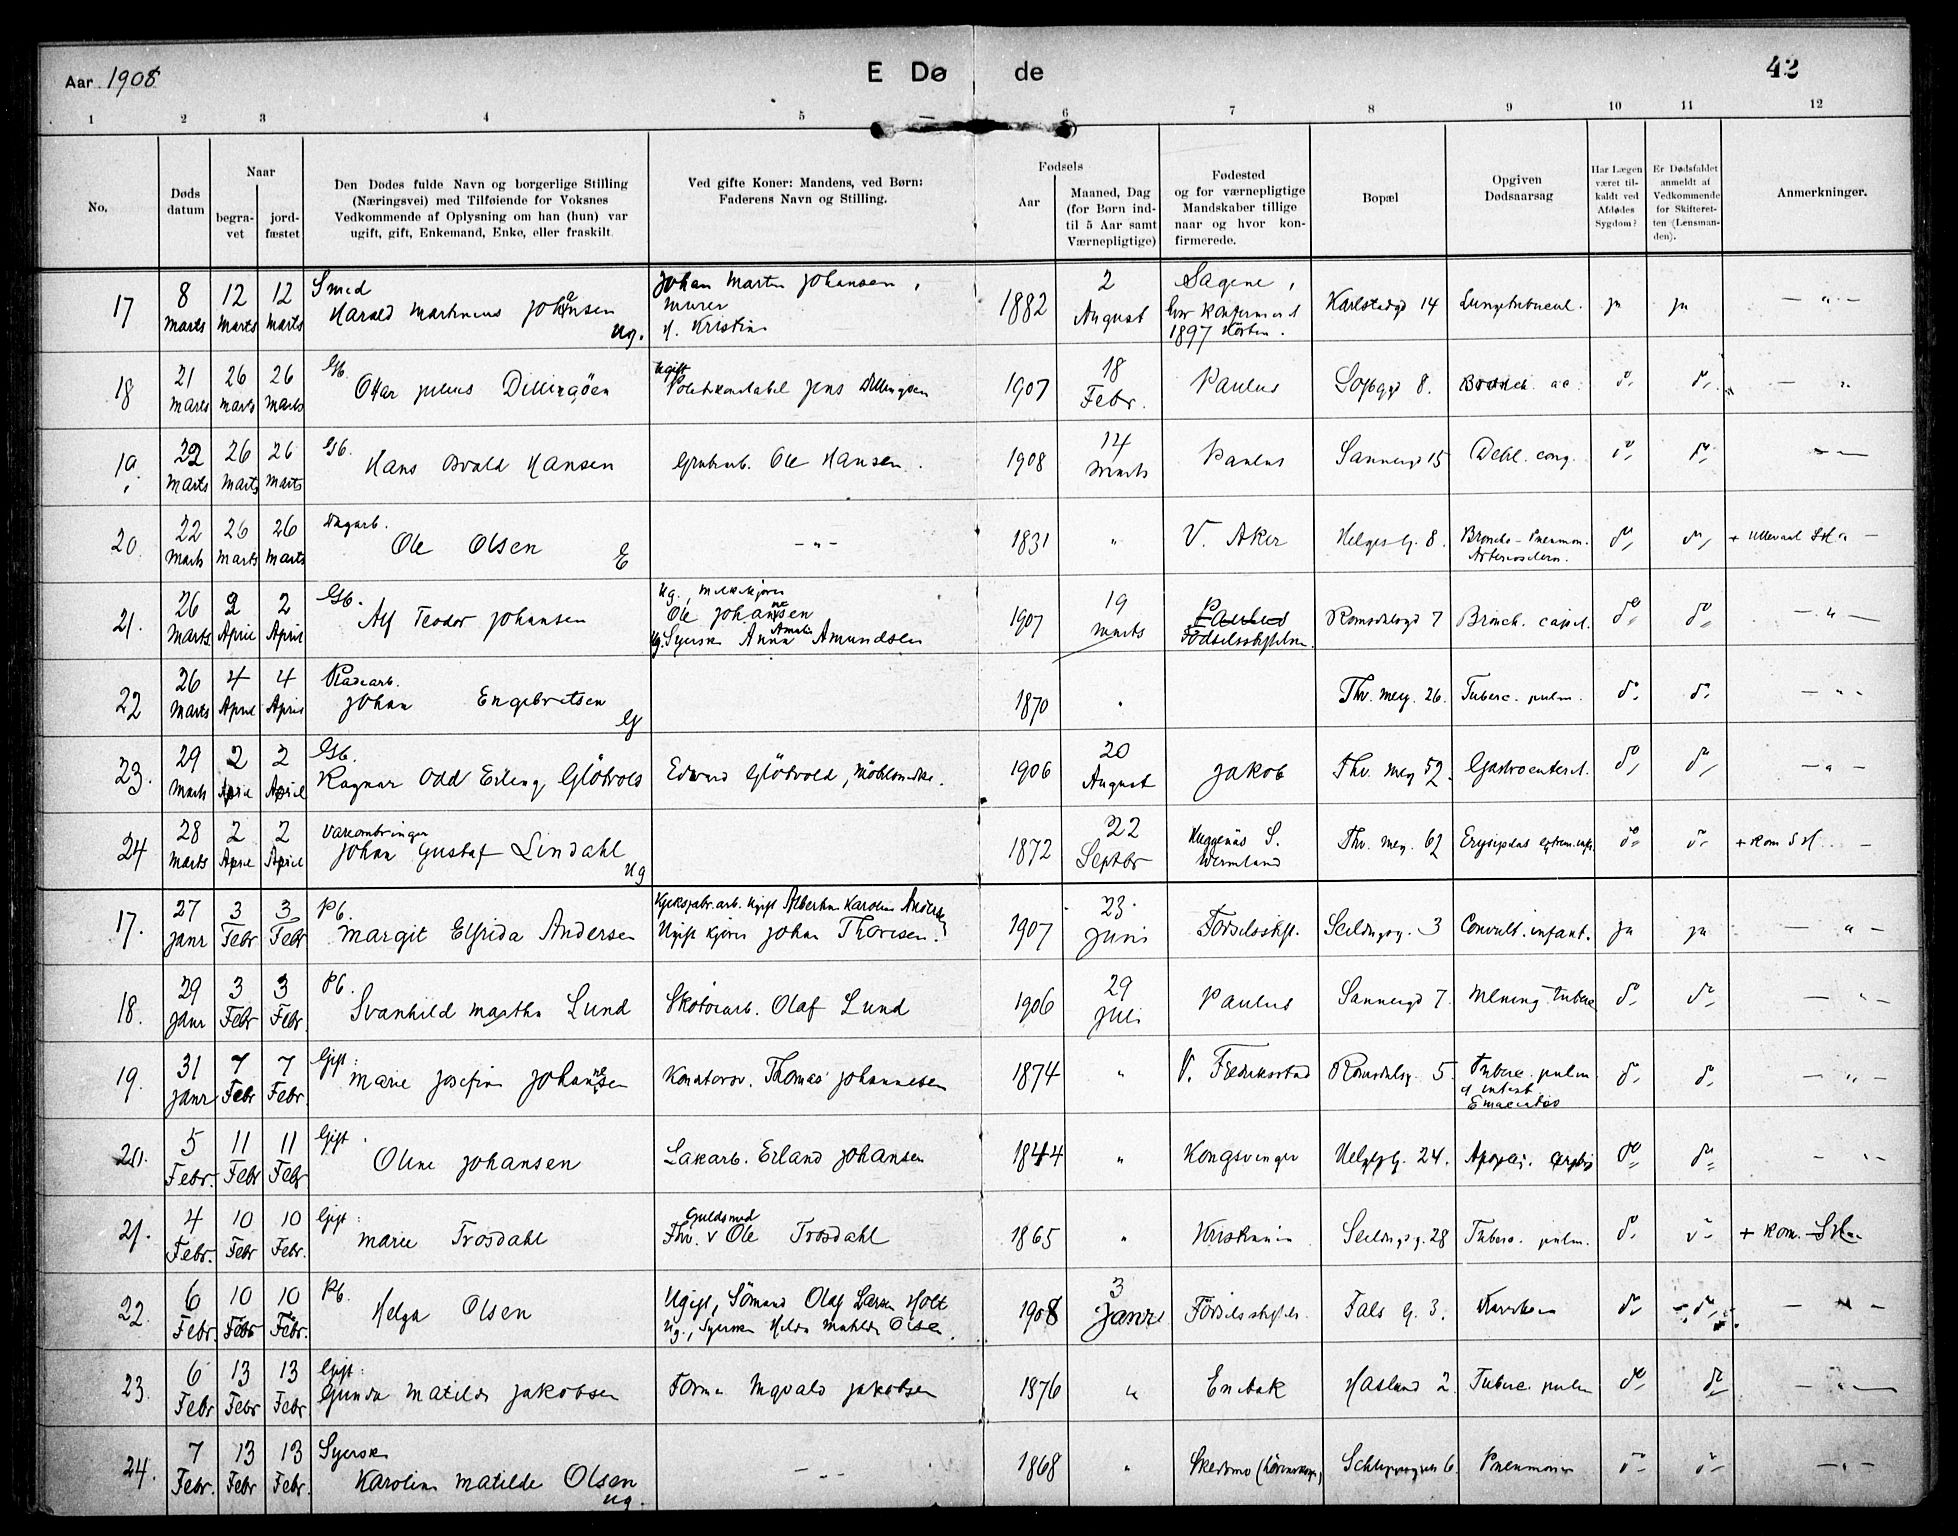 Aar 1908
E Dø de
42
1 2 3 4 5 6 7 8 9 10 11 12
No.
Døds datum
Naar
begra-vet
jord-fæstet
Den Dødes fulde Navn og borgerlige Stilling
(Næringsvei) med Tilføiende for Voksnes
Vedkommende af Oplysning om han (hun) var
ugift, gift, Enkemand, Enke, eller fraskilt.
Ved gifte Koner: Mandens, ved Børn:
Faderens Navn og Stilling.
Fødsels
Aar
Maaned, Dag
(for Børn ind-
til 5 Aar samt
Værnepligtige)
Fødested
og for værnepligtige
Mandskaber tillige
naar og hvor kon-
firmerede.
Bopæl
Opgiven
Dødsaarsag
Har Lægen
været til-
kaldt ved
Afdødes
Sygdom?
Er Dødsfaldet
anmeldt af
Vedkommende
for Skifteret-
ten (Lensman-
den).
Anmerkninger.
17 8 Marts 12 Marts 12 Marts Smed Harald Martinius Johansen Ug. Johan Martin Johansen, Murer H. Kristin 1882 2 August Sagene, konfirmeret 1897 Horten. Karlstadgd 14 ja ja — " —
18 21 Marts 26 Marts 26 Marts Gb. Julius Ugift Politikonstabel Jens 1907 18 Febr. Paulus 8. Bronch. ac. do do — "
19 22 Marts 26 Marts 26 Marts Gb. Hans Osvald Hansen Ole Hansen. 1908 14 Marts Paulus Sannergd 15 Debil. cong. do do — " —
20. 22 Marts 26 Marts 26 Marts Dagarb. Ole Olsen E — " — 1831 " V. Aker Helges G. 8. Broncho-Pneumon. Arterioscleros. do do + Ullevaal SH " —
21. 26 Marts 2 April 2 April Gb. Alf Teodor Johansen Ug., Melkekjører Ole Johannesen Ug. Syerske Anna Amalie Amundsen 1907 19 Marts Paulus Fødselsstiftelsen. Romsdalsgd 7 Bronch. capil. do do — " —
22 26 Marts 4 April 4 April Johan Engebretsen G 1870 " Thv. mey. 26. Tuberc. pulm. do do — " —
23. 29 Marts 2 April 2 April Gb. Ragnar Odd Erling Edward 1906 20 August Jakob Thv. mey 52. Gastroenterit. do do — " —
24 28 Marts 2 April 2 April Vareombringer Johan Gustaf Lindahl Ug 1872 22 Septbr S. Wermland Thv. mey. 62 Erysipelas do do + Kom SH —
17. 27 Janr 3 Febr 3 Febr Pb. Margit Elfrida Andersen Ugift Karoline Andersen Ugift Kjører Johan Thoresen. 1907 23 Juni Fødselsstift. Seildugsg. 3 Convuls. infant. ja ja — " —
18. 29 Janr 3 Febr 3 Febr. Pb. Svanhild Martha Lund Skotøiarb. Olaf Lund 1906 29 Juli Paulus Sannergd 7. Mening. tuberc do do — " —
19. 31 Janr 7 Febr 7 Febr. Gift: Marie Josefine Johannesen Kontorsv. Thomas Johannesen 1874 " V. Fredriksstad Romsdalsg. 5. Tuberc. pulm et intest. do do — " —
20. 5 Febr. 11 Febr 11 Febr Gift. Oline Johansen Erland Johansen 1844 " Kongsvinger Helges G. 24. do do — " —
21. 4 Febr. 10 Febr 10 Febr. Gift: Marie Trosdahl Guldsmed Ole Trosdahl 1865 " Kristiania Seildugsg. 28 Tuberc. pulm. do do + Kom. SH —
22. 6 Febr. 10 Febr 10 Febr. Pb. Helga Olsen Ugift, Sømand Olaf Larsen Holt Ug., Syerske Hilda Matilde Olsen. 1908 3 Janr Fødselsstiftels. Fals G. 3. do do — " —
23. 6 Febr 13 Febr 13 Febr. Gift: Gunda Matilde Jakobsen Ingvald Jakobsen 1876 " Enebak Haslund 2 Tuberc. pulm do do — " —
24. 7 Febr. 13 Febr 13 Febr. Syerske Karoline Matilde Olsen ug. — " — 1868 " Skedsmo 6. Pneumoni do do — " —